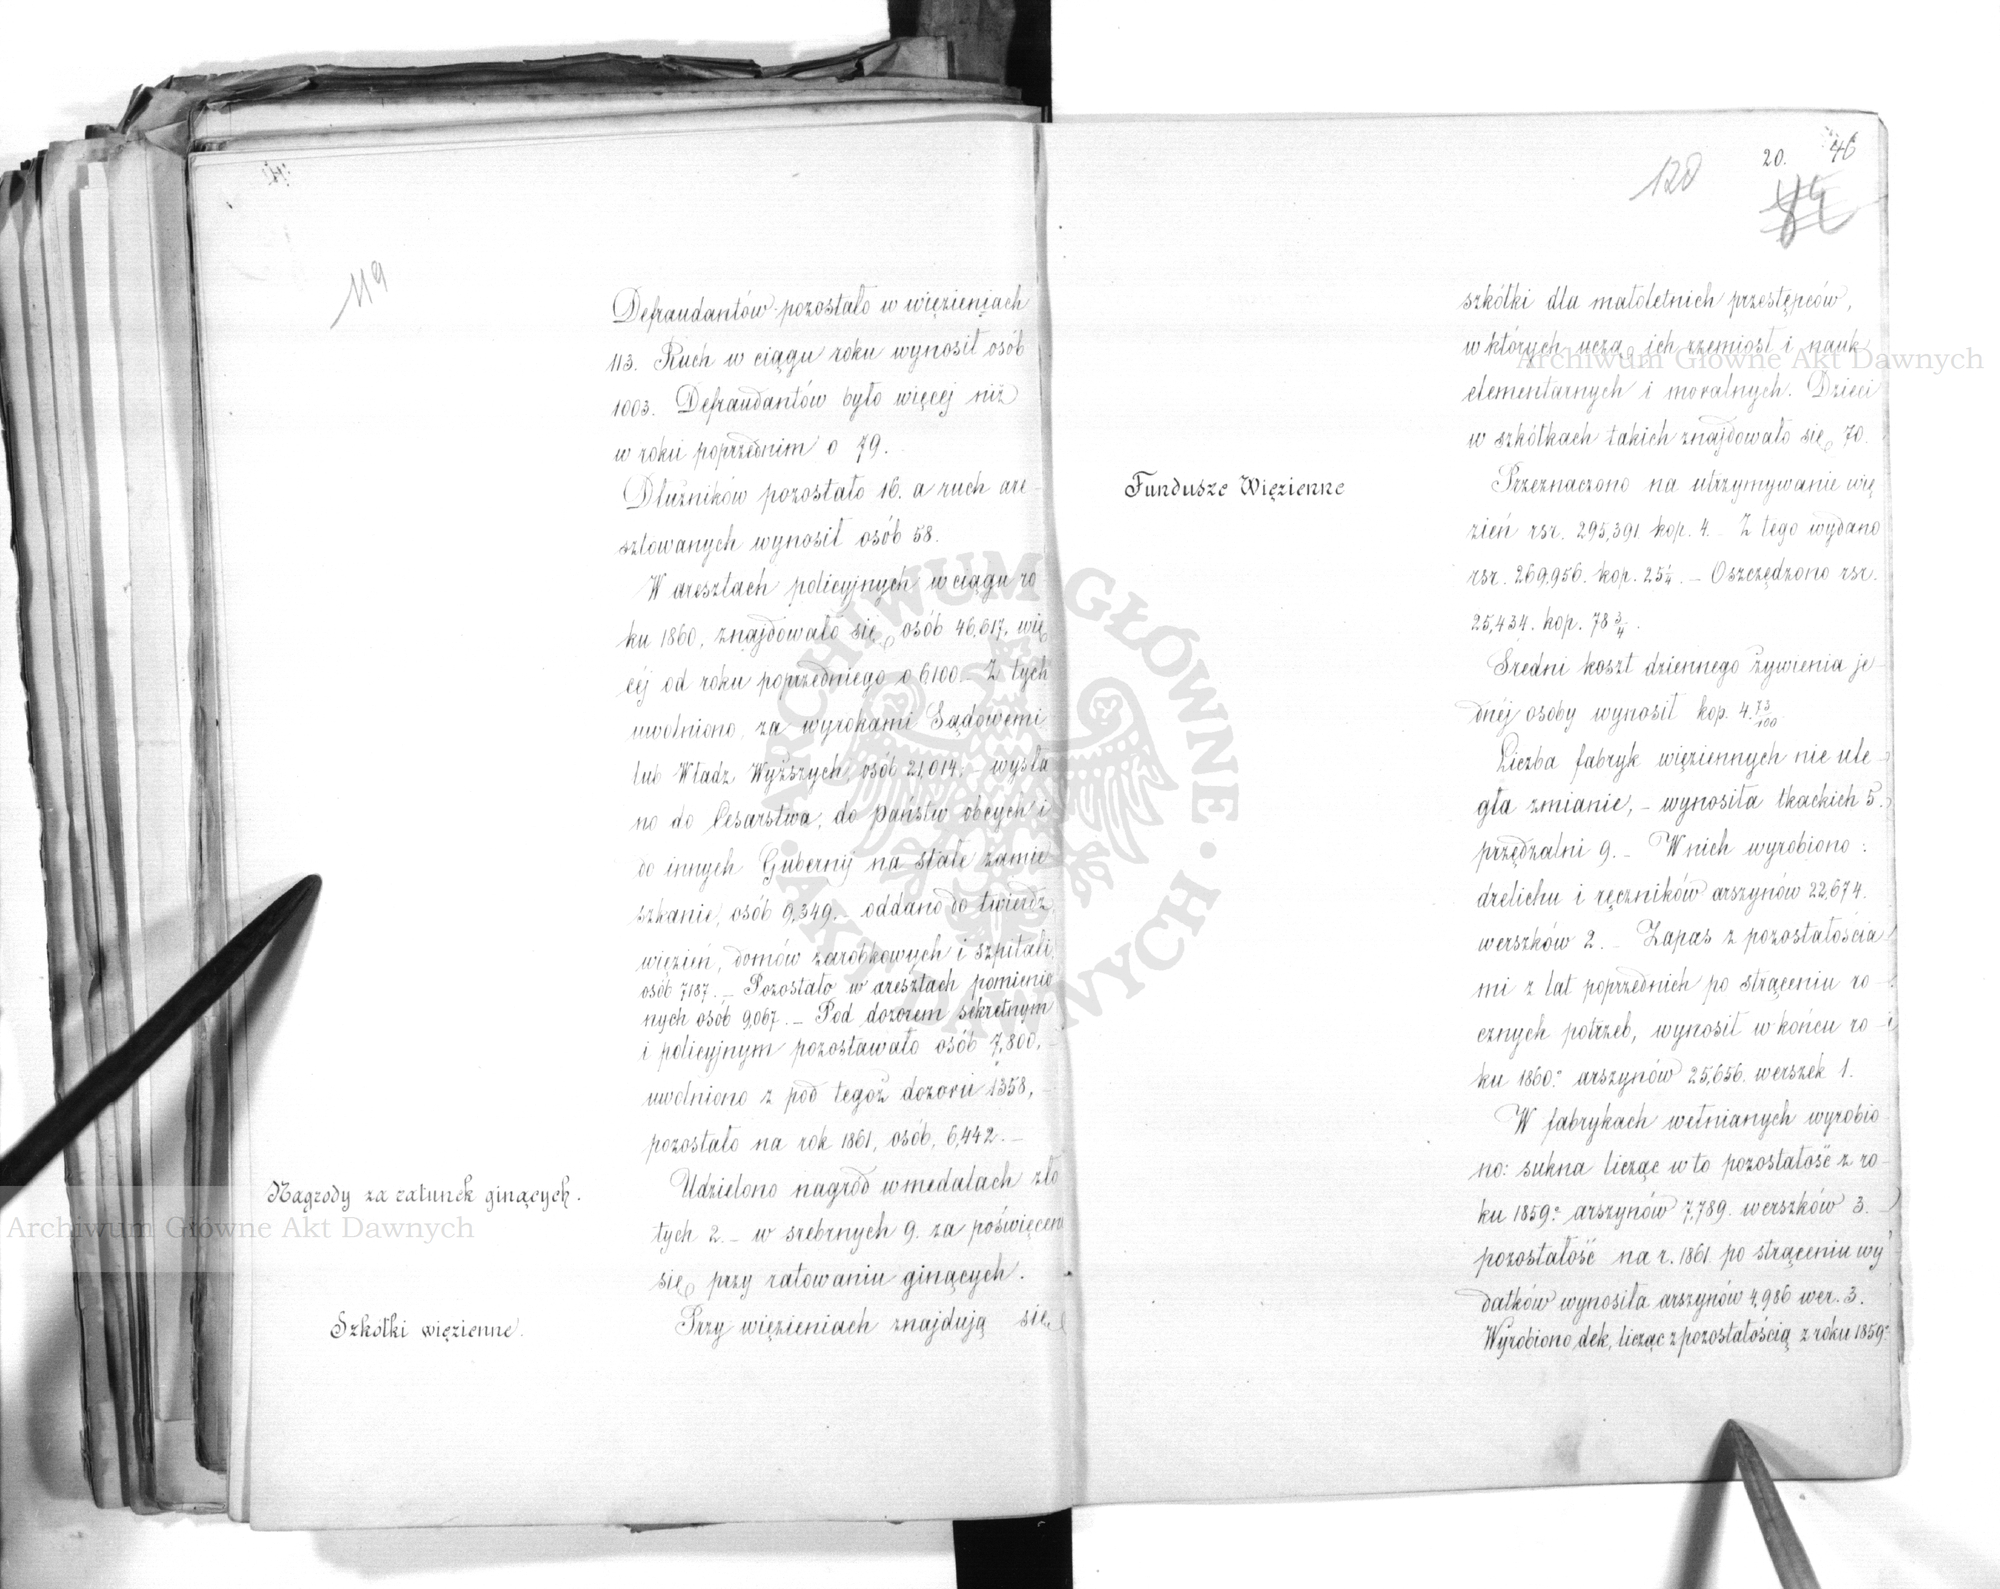 119
Defraudantów pozostało w więzieniach
113. Ruch w ciągu roku wynosił osób
1003. Defraudantów było więcej niż
w roku poprzednim o 79.
Dłużników pozostało 16. a ruch are-
sztowanych wynosił osób 58.
W aresztach policyjnych w ciągu ro
ku 1860, znajdowało się osób 46,617, wię
céj od roku poprzedniego o 6100. – Z tych
uwolniono, za wyrokami Sądowemi
lub Władz Wyższych, osób 21,014. – wysła
no do Cesarstwa, do państw obcych i
do innych Gubernij na stałe zamie
szkanie, osób 9,349. – oddano do twierdz,
więzień, domów zarobkowych i szpitali,
osób 7187. – Pozostało w aresztach pomienio
nych osób 9,067. – Pod dozorem sekretnym
i policyjnym pozostawało osób 7,800, –
uwolniono z pod tegoż dozoru 1358, –
pozostało na rok 1861, osób, 6,442. –
Nagrody za ratunek ginących.
Udzielono nagród w medalach zło
tych 2. – w srebrnych 9. za poświęceni
się przy ratowaniu ginących.
Szkółki więzienne.
Przy więzieniach znajdują się
120
20.
46
szkółki dla małoletnich przestępców,
w których uczą ich rzemiosł i nauk
elementarnych i moralnych. Dzieci
w szkółkach takich znajdowało się 70.
Fundusze Więzienne
Przeznaczono na utrzymywanie wię
zień rsr. 295,391 kop. 4. – Z tego wydano
rsr. 269,956. kop. 25¼. – Oszczędzono rsr.
25,434. kop. 78 ¾.
Średni koszt dziennego żywienia je-
dnéj osoby wynosił kop. 4. 73/100
Liczba fabryk więziennych nie ule-
gła zmianie, – wynosiła tkackich 5.
przędzalni 9. – W nich wyrobiono:
drelichu i ręczników arszynów 22,674.
werszków 2. – Zapas z pozostałościa
mi z lat poprzednich po strąceniu ro-
cznych potrzeb, wynosił w końcu ro-
ku 1860.º arszynów 25,656. werszek 1.
W fabrykach wełnianych wyrobio
no: sukna licząc w to pozostałość z ro-
ku 1859.º arszynów 7,789. werszków 3. –
pozostałość na r. 1861 po strąceniu wy
datków wynosiła arszynów 4,986 wer. 3.
Wyrobiono dek, licząc z pozostałością z roku 1859.º
Archiwum Główne Akt Dawnych
Archiwum Główne Akt Dawnych
ARCHIWUM GŁÓWNE
· AKT DAWNYCH ·